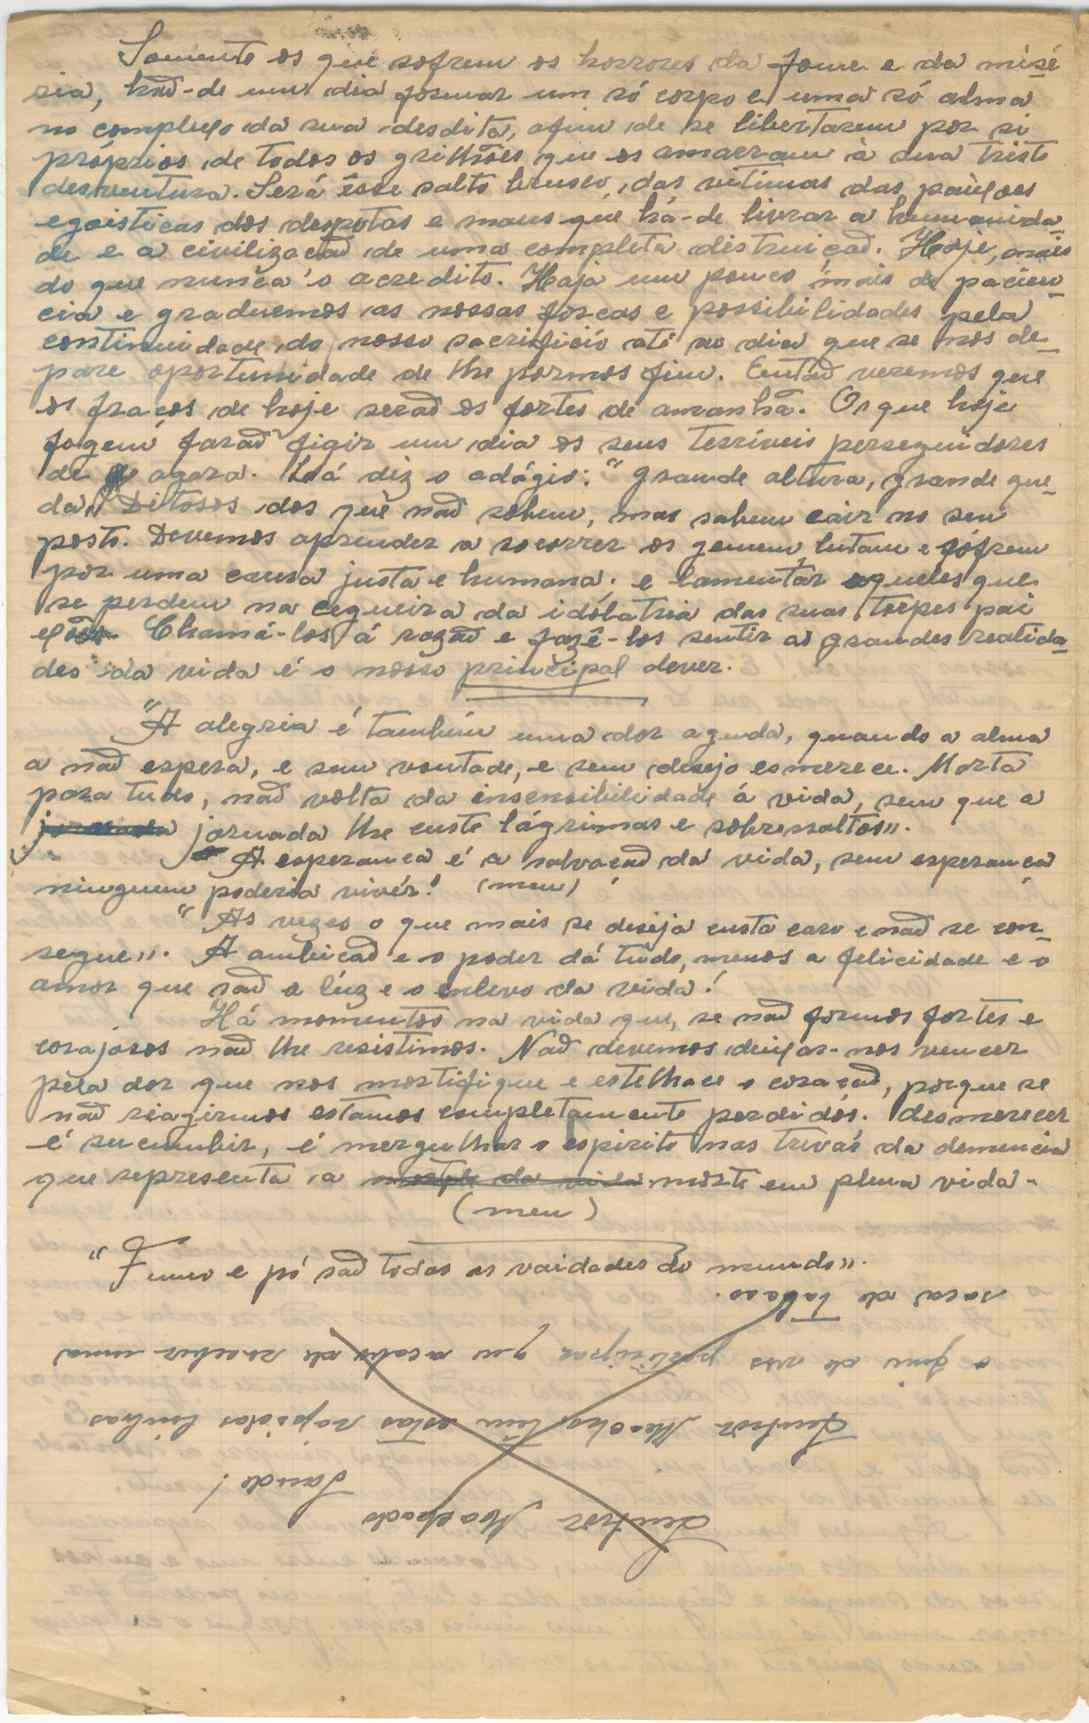 Somente os que sofrem os horrores da fome e da misé
ria, hão-de um dia formar um só corpo e uma só alma
no complexo da sua desdita, afim de se libertarem por si
próprios de todos os grilhões que os amarram à sua triste
desventura. Será êsse salto brusco, das vitimas das paixoes
egoisticas dos despotas e maus que há-de livrar a humanida-
de e a civilizacão de uma completa distruicão. Hoje, mais
do que nunca o acredito. Haja um pouco mais de paciên-
cia e graduemos as nossas forcas e possibilidades pela
continuidade do nosso sacrificio até ao dia que se nos de-
pare oportunidade de lhe pormos fim. Então veremos que
os fracos de hoje serão os fortes de amanhã. Os que hoje
fogem, farão figir um dia os seus terríveis perseguidores
de agora. Lá diz o adágio: "grande altura, grande que-
da". Ditosos dos que não sobem, mas sabem cair no seu
posto. Devemos aprender a socorrer os gemem, lutam e sófrem
por uma causa justa e humana, e lamentar aqueles que
se perdem na cegueira da idolatria das suas torpes pai
xões Chamá-los á razão e fazê-los sentir as grandes realida-
des da vida é o nosso principal dever.
"A alegria é também uma dor aguda, quando a alma
a não espera, e sem vontade, e sem desejo esmerece. Morta
para tudo, não volta da insensibilidade á vida, sem que a
jornada jornada lhe custe lágrimas e sobressaltos".
A esperanca é a salvacão da vida, sem esperanca
ninguem poderia vivér! (meu)
"As vezes o que mais se deseja custa caro e não se con-
segue". A ambicão e o poder dá tudo, menos a felicidade e o
amor que são a lúz e o enlevo da vida!
Há momentos na vida que, se não formos fortes e
corajosos não lhe resistimos. Não devemos deixar-nos vencer
pela dor que nos mortifique e estelhace o coracão, porque se
não riagirmos estamos completamente perdidos. desmerecer
é sucumbir, é mergulhar o espirito nas trevas da demencia
que representa a morte da vida morte em plena vida.
(meu)
"Fumo e pó são todas as vaidades do mundo".
Senhor Machado
Saude!
Senhor Machado tem estas rapidas linhas
o fim de vos participar que acabo de receber uma
saca de tabaco.